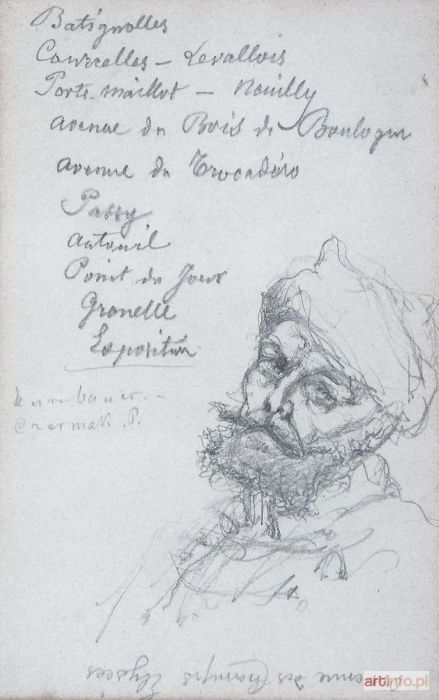 Batignolles
Courcelles – Levallois
Porte-maillot – Neuilly
avenue du Bois de Boulogne
avenue du Trocadéro
Passy
Auteuil
Point du Jour
Grenelle
Exposition
Czermak. P.
des Champs Elysées
artinfo.pl